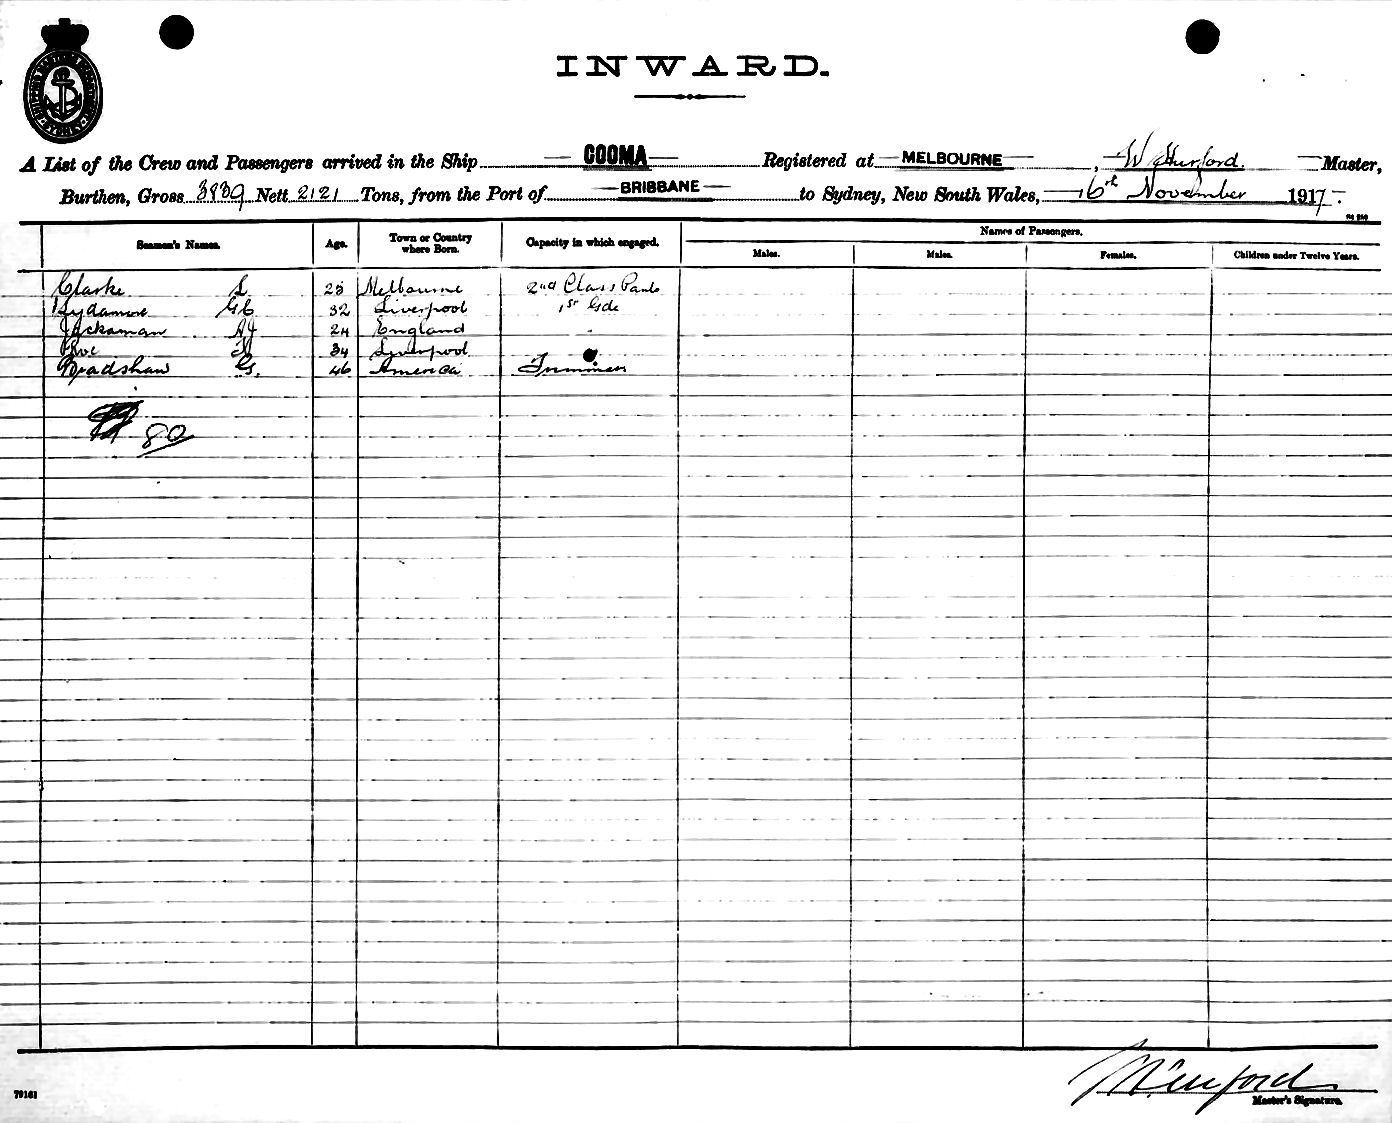 INWARD.
A List of the Crew and Passengers arrived in the Ship COOMA Registered at MELBOURNE, W Master,
Burthen, Gross 3839 Nett 2121 Tons, from the Port of BRISBANE to Sydney, New South Wales, 16th November 1917.
Seamen's Names. Age. Town or Country where Born. Capacity in which engaged. Names of Passengers.
Males. Males. Females. Children under Twelve Years.
Clarke 25 Melbourne 2nd Class Pants
G C 32 Liverpool 1st Gde
Jackaman A J 24 England "
34 Liverpool
Bradshaw G. 46 America Trimmer
80
79161
Master's Signature.